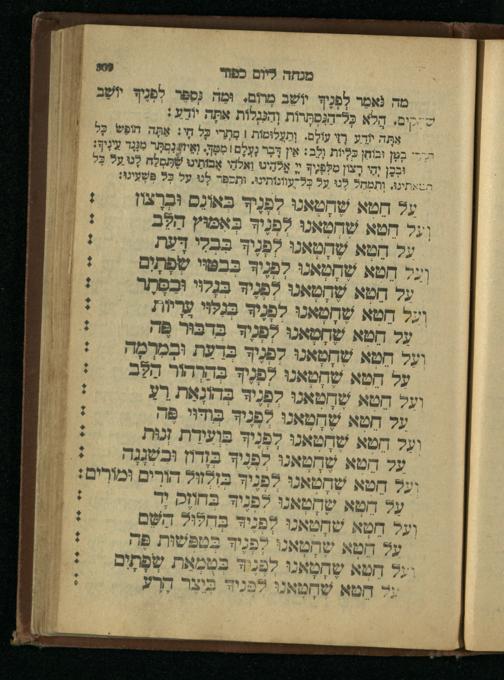 מנחה ליום כפור
מַה נֹּאמַר לְפָנֶיךָ יוֹשֵׁב מָרוֹם, וּמַה נְּסַפֵּר לְפָנֶיךָ יוֹשֵׁב
שְׁחָקִים, הֲלֹא כָּל־הַנִּסְתָּרוֹת וְהַנִּגְלוֹת אַתָּה יוֹדֵעַ:
אַתָּה יוֹדֵעַ רָזֵי עוֹלָם, וְתַעֲלוּמוֹת סִתְרֵי כָּל חָי: אַתָּה חוֹפֵשׂ כָּל
חַדְרֵי בָטֶן וּבוֹחֵן כְּלָיוֹת וָלֵב: אֵין דָּבָר נֶעְלָם מִמֶּךָּ, וְאֵין נִסְתָּר מִנֶּגֶד עֵינֶיךָ:
וּבְכֵן יְהִי רָצוֹן מִלְּפָנֶיךָ יְיָ אֱלֹהֵינוּ וֵאלֹהֵי אֲבוֹתֵינוּ שֶׁתִּסְלַח לָנוּ עַל כָּל
חַטֹּאתֵינוּ, וְתִמְחָל לָנוּ עַל כָּל־עֲוֹנוֹתֵינוּ, וּתְכַפֵּר לָנוּ עַל כָּל פְּשָׁעֵינוּ:
עַל חֵטְא שֶׁחָטָאנוּ לְפָנֶיךָ בְּאוֹנֶס וּבְרָצוֹן
וְעַל חֵטְא שֶׁחָטָאנוּ לְפָנֶיךָ בְּאִמּוּץ הַלֵּב
עַל חֵטְא שֶׁחָטָאנוּ לְפָנֶיךָ בִּבְלִי דָעַת
וְעַל חֵטְא שֶׁחָטָאנוּ לְפָנֶיךָ בְּבִטּוּי שְׂפָתָיִם
עַל חֵטְא שֶׁחָטָאנוּ לְפָנֶיךָ בְּגָלוּי וּבַסָּתֶר
וְעַל חֵטְא שֶׁחָטָאנוּ לְפָנֶיךָ בְּגִלּוּי עֲרָיוֹת
עַל חֵטְא שֶׁחָטָאנוּ לְפָנֶיךָ בְּדִבּוּר פֶּה
וְעַל חֵטְא שֶׁחָטָאנוּ לְפָנֶיךָ בְּדַעַת וּבְמִרְמָה
עַל חֵטְא שֶׁחָטָאנוּ לְפָנֶיךָ בְּהַרְהוֹר הַלֵּב
וְעַל חֵטְא שֶׁחָטָאנוּ לְפָנֶיךָ בְּהוֹנָאַת רֵעַ
עַל חֵטְא שֶׁחָטָאנוּ לְפָנֶיךָ בְּוִדּוּי פֶּה
וְעַל חֵטְא שֶׁחָטָאנוּ לְפָנֶיךָ בִּוְעִידַת זְנוּת
עַל חֵטְא שֶׁחָטָאנוּ לְפָנֶיךָ בְּזָדוֹן וּבִשְׁגָגָה
וְעַל חֵטְא שֶׁחָטָאנוּ לְפָנֶיךָ בְּזִלְזוּל הוֹרִים וּמוֹרִים:
עַל חֵטְא שֶׁחָטָאנוּ לְפָנֶיךָ בְּחוֹזֶק יָד
וְעַל חֵטְא שֶׁחָטָאנוּ לְפָנֶיךָ בְּחִלּוּל הַשֵּׁם
עַל חֵטְא שֶׁחָטָאנוּ לְפָנֶיךָ בְּטִפְּשׁוּת פֶּה
וְעַל חֵטְא שֶׁחָטָאנוּ לְפָנֶיךָ בְּטֻמְאַת שְׂפָתָיִם
עַל חֵטְא שֶׁחָטָאנוּ לְפָנֶיךָ בְּיֵצֶר הָרָע